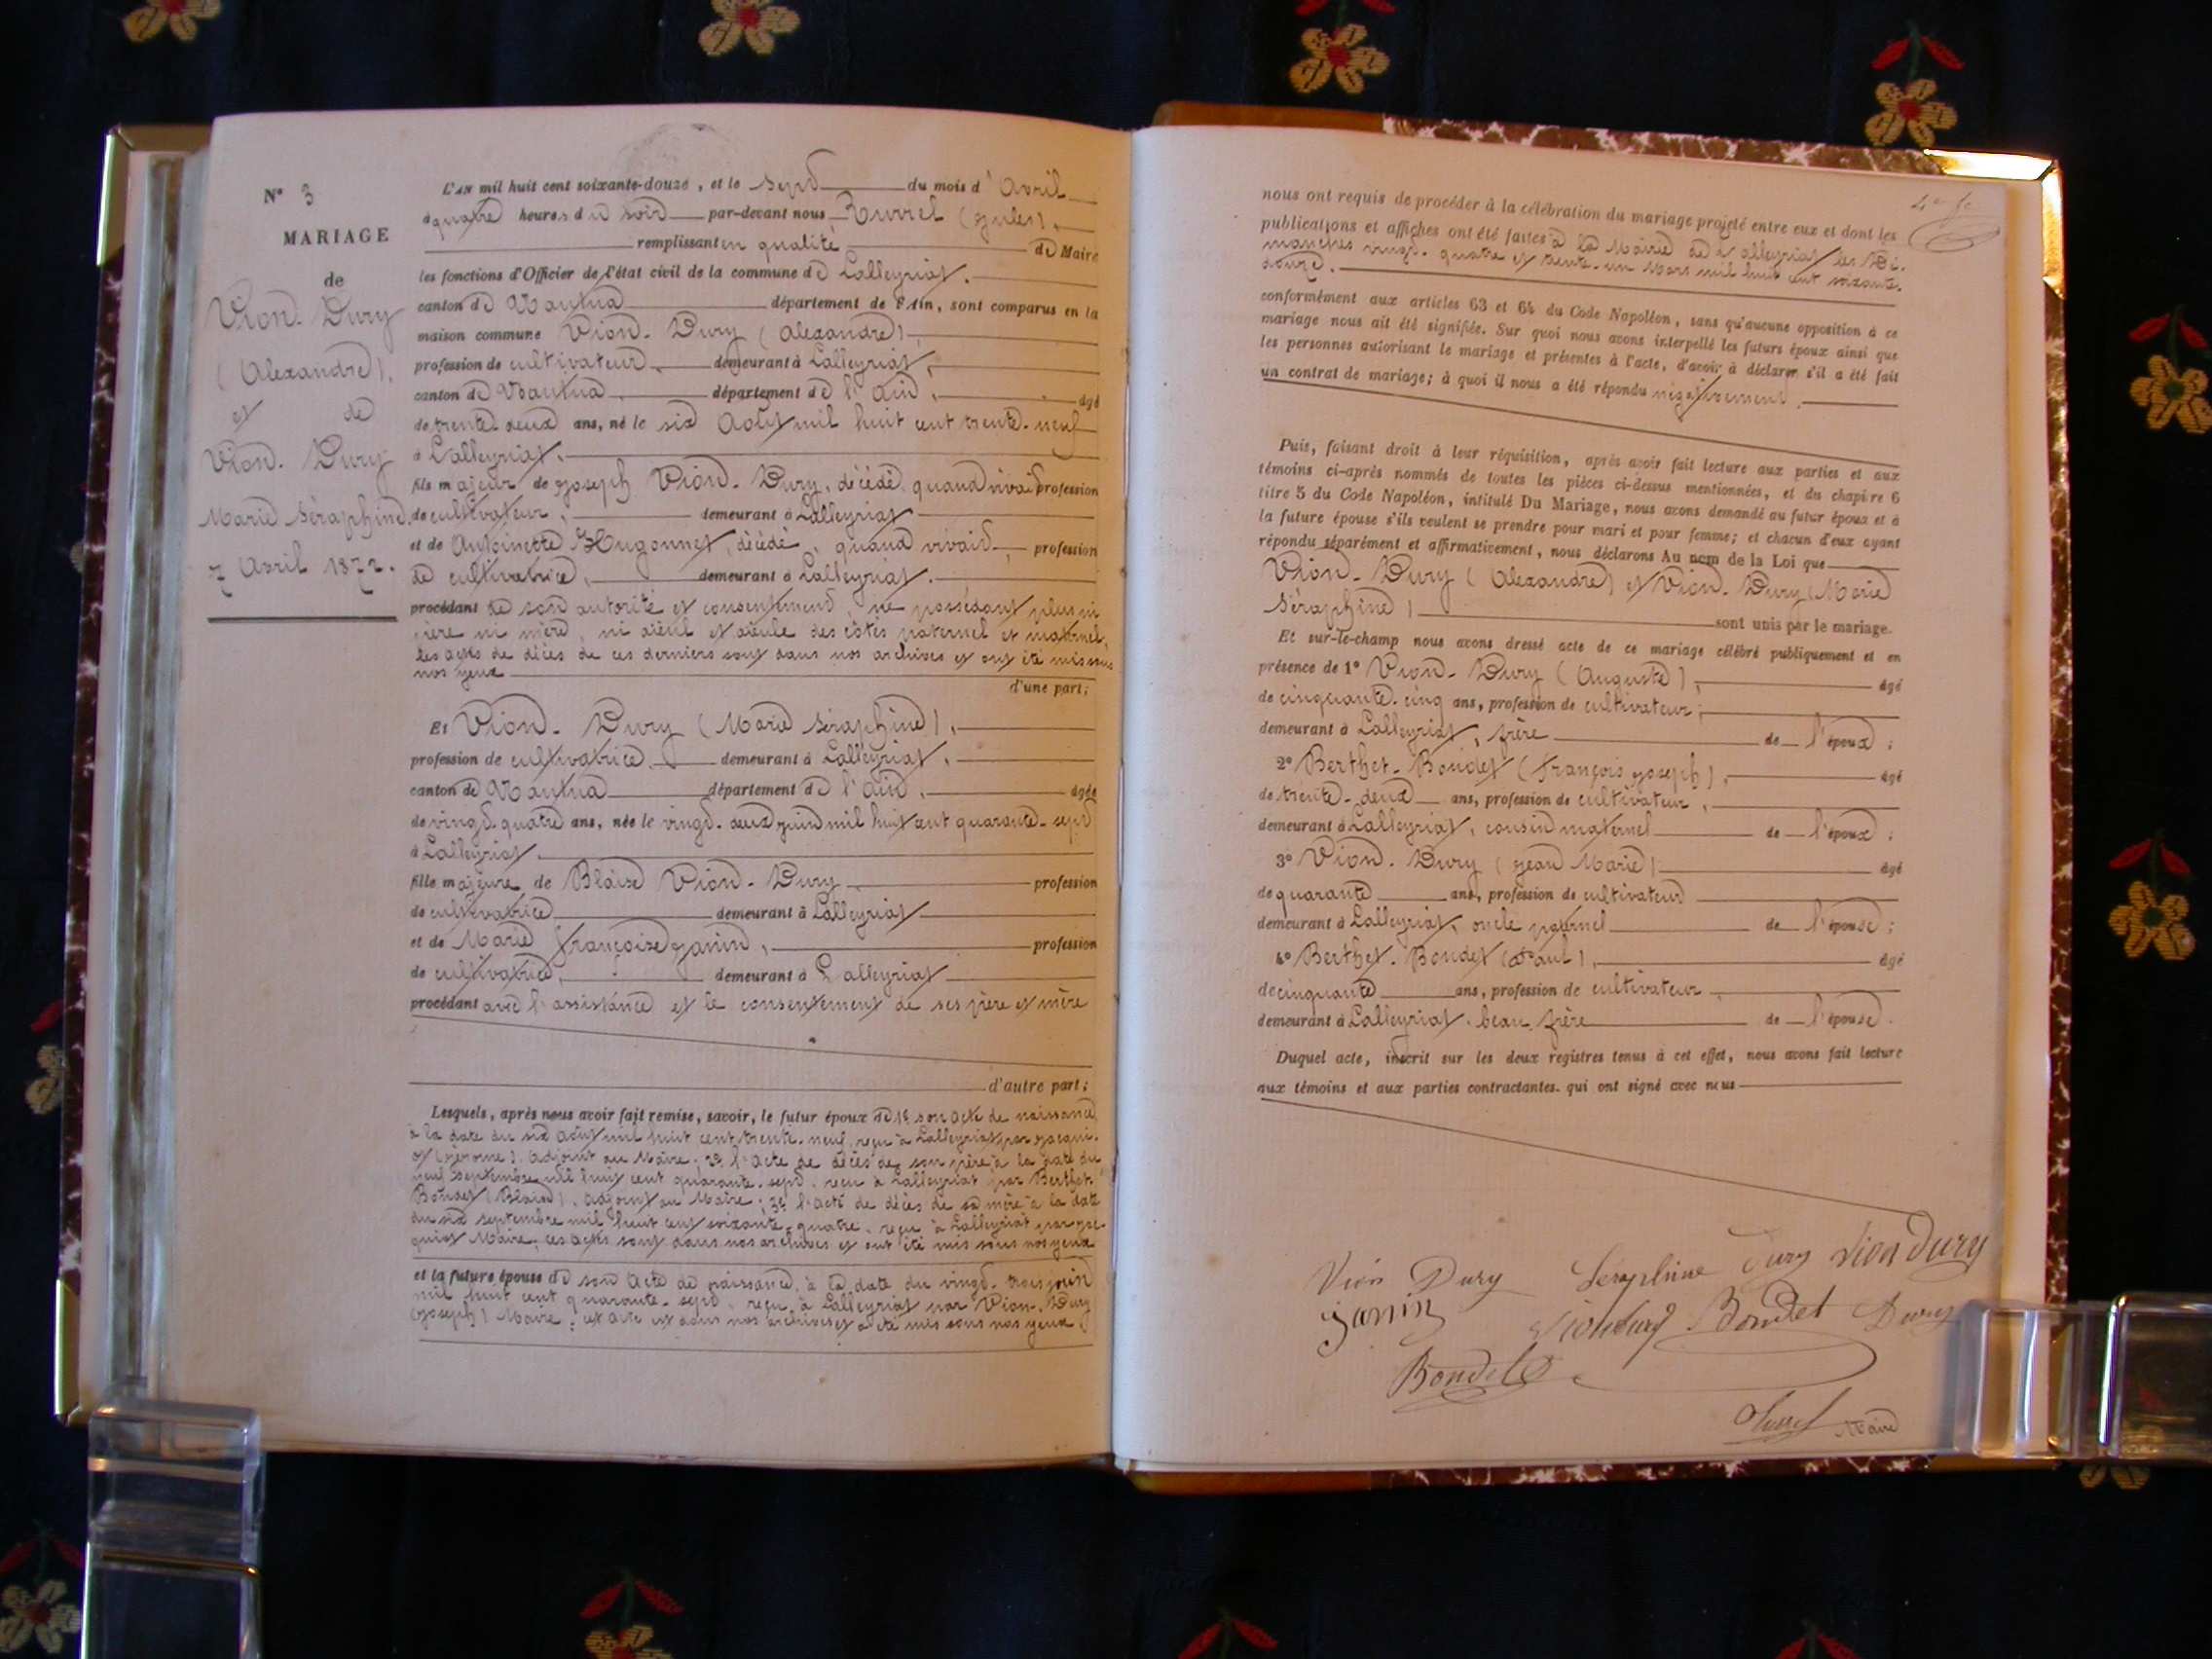 N° 3
MARIAGE
de
Vion-Dury
(Alexandre),
et de
Vion-Dury
Marie Séraphine.
7 Avril 1872.
L'AN mil huit cent soixante-douze, et le sept du mois d'Avril
à quatre heures du soir par-devant nous (Jules),
remplissant en qualité de Maire
les fonctions d'Officier de l'état civil de la commune de Lalleyriat.
canton de Nantua département de l'Ain, sont comparus en la
maison commune Vion-Dury (Alexandre),
profession de cultivateur, demeurant à Lalleyriat,
canton de Nantua, département de l'Ain, âgé
de trente-deux ans, né le six Août mil huit cent trente-neuf
à Lalleyriat,
fils majeur de Joseph Vion-Dury, décédé, quand vivait profession
de cultivateur, demeurant à Lalleyriat
et de Antoinette Hugonnet, décédé, quand vivait profession
de cultivatrice, demeurant à Lalleyriat.
procédant de son autorité et consentement, ne possédant plus ni
père ni mère, ni aïeul et aïeule des côtés paternel et maternel,
les actes de décès de ces derniers sont dans nos archives et ont été mis sous
nos yeux
d'une part;
Et Vion-Dury (Marie Séraphine),
profession de cultivatrice, demeurant à Lalleyriat,
canton de Nantua département de l'Ain, âgée
de vingt-quatre ans, née le vingt-deux juin mil huit cent quarante-sept
à Lalleyriat
fille majeure de Blaise Vion-Dury, profession
de cultivatrice demeurant à Lalleyriat
et de Marie Françoise Janin, profession
de cultivatrice, demeurant à Lalleyriat
procédant avec l'assistance et le consentement de ses père et mère
d'autre part;
Lesquels, après nous avoir fait remise, savoir, le futur époux de 1° son acte de naissance
à la date du six août mil huit cent trente-neuf, reçu à Lalleyriat par Jacqui-
ot (Jérome), adjoint au Maire; 2° l'acte de décès de son père à la date du
neuf septembre mil huit cent quarante-sept, reçu à Lalleyriat par Berthet-
Bondet (Blaise), adjoint au Maire; 3° l'acte de décès de sa mère à la date
du six septembre mil huit cent soixante-quatre, reçu à Lalleyriat par Jac-
quiot Maire; ces actes sont dans nos archives et ont été mis sous nos yeux
et la future épouse de son acte de naissance, à la date du vingt-trois juin
mil huit cent quarante-sept, reçu à Lalleyriat par Vion-Dury
(Joseph) Maire; cet acte est dans nos archives et a été mis sous nos yeux
nous ont requis de procéder à la célébration du mariage projeté entre eux et dont les
publications et affiches ont été faites à la Mairie de Lalleyriat les Di-
manches vingt-quatre et trente-un Mars mil huit cent soixante-
douze.
conformément aux articles 63 et 64 du Code Napoléon, sans qu'aucune opposition à ce
mariage nous ait été signifiée. Sur quoi nous avons interpellé les futurs époux ainsi que
les personnes autorisant le mariage et présentes à l'acte, d'avoir à déclarer s'il a été fait
un contrat de mariage; à quoi il nous a été répondu négativement.
Puis, faisant droit à leur réquisition, après avoir fait lecture aux parties et aux
témoins ci-après nommés de toutes les pièces ci-dessus mentionnées, et du chapitre 6
titre 5 du Code Napoléon, intitulé Du Mariage, nous avons demandé au futur époux et à
la future épouse s'ils veulent se prendre pour mari et pour femme; et chacun d'eux ayant
répondu séparément et affirmativement, nous déclarons Au nom de la Loi que
Vion-Dury (Alexandre) et Vion-Dury (Marie
Séraphine) sont unis par le mariage.
Et sur-le-champ nous avons dressé acte de ce mariage célébré publiquement et en
présence de 1° Vion-Dury (Auguste), âgé
de cinquante-cinq ans, profession de cultivateur,
demeurant à Lalleyriat, frère de l'époux;
2° Berthet-Bondet (François Joseph), âgé
de trente-deux ans, profession de cultivateur,
demeurant à Lalleyriat, cousin maternel de l'époux;
3° Vion-Dury (Jean Marie) âgé
de quarante ans, profession de cultivateur
demeurant à Lalleyriat, oncle paternel de l'épouse;
4° Berthet-Bondet (Paul), âgé
de cinquante ans, profession de cultivateur
demeurant à Lalleyriat, beau-frère de l'épouse.
Duquel acte, inscrit sur les deux registres tenus à cet effet, nous avons fait lecture
aux témoins et aux parties contractantes qui ont signé avec nous
Vion Dury Séraphine Dury Vion Dury
Janin Viondury Bondet Dury
Bondet
Maire